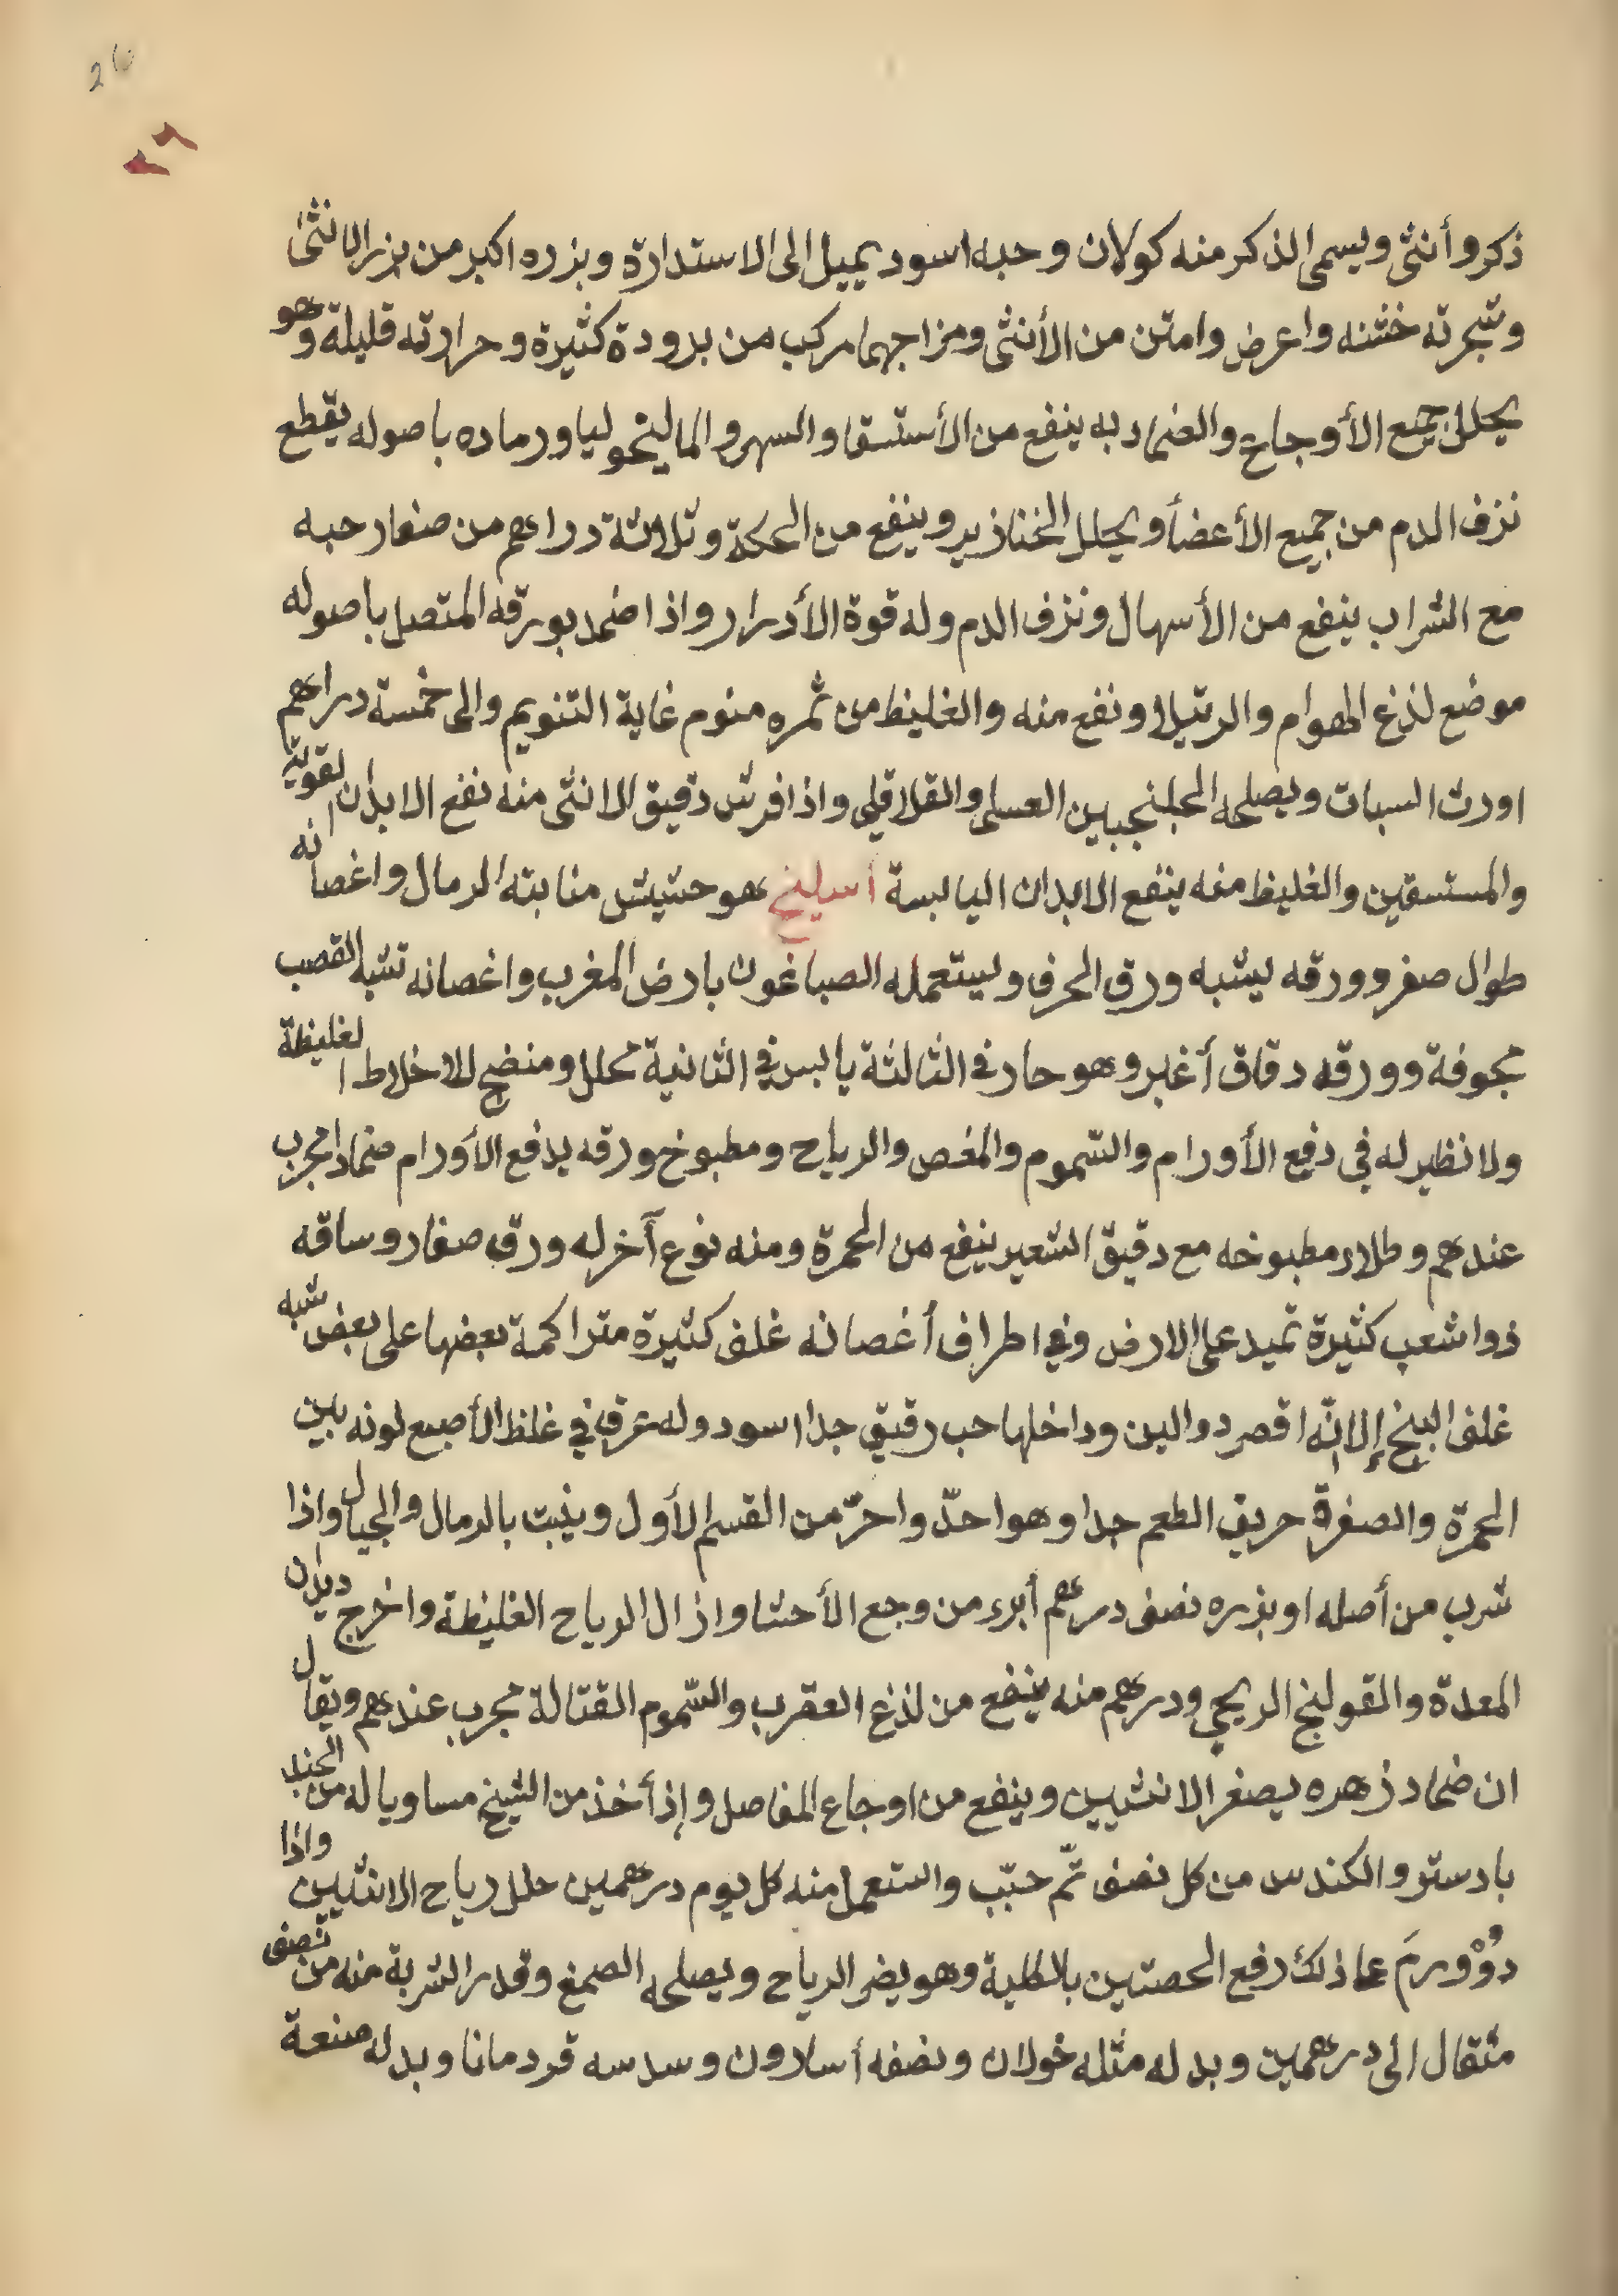 26
٢٦
ذكر وأنثى ويسمى الذكر منه كولان وحبه اسود يميل الى الاستدارة وبزره اكبر من بزر الانثى
وشجرته خشنه واعرض وامتن من الأنثى ومزاجهما مركب من برودة كثيرة وحرارته قليلة وهو
يحلل جميع الأوجاع والضماد به ينفع من الأستسقا والسهر والماليخوليا ورماده باصوله يقطع
نزف الدم من جميع الأعضأ ويحلل الخنازير وينفع من الحكة وثلاثة دراهم من صغار حبه
مع الشراب ينفع من الأسهال ونزف الدم وله قوة الأدرار واذا ضمد بورقه المتصل باصوله
موضع لذغ الهوام والرتيلا ونفع منه والغليظ من ثمره منوم غاية التنويم والى خمسة دراهم
اورث السبات ويصلحه الجلنجبين العسلى والقلاقلى واذا فرش دقيق الانثى منه نفع الابدان لقوية
والمستسقين والغليظ منه ينفع الابدان اليابسة اسليخ هو حشيش منابته الرمال واغصانه
طوال صفر وورقه يشبه ورق الحرف ويستعمله الصباغون بارض المغرب واغصانه تشبه القصب
مجوفة وورقه دقاق أغبر وهو حار في الثالثة يابس في الثانية محلل ومنضج للاخلاط الغليظة
ولا نظير له في دفع الأورام والسّموم والمغص والرياح ومطبوخ ورقه يدفع الأورام ضمادا مجرب
عندهم وطلاء مطبوخه مع دقيق الشعير ينفع من الحمرة ومنه نوع آخر له ورق صغار وساقه
ذوا شعب كثيرة تميد على الارض وفي اطراف أغصانه غلف كثيرة متراكمة بعضها على بعض شبه
غلف البنج إلا انّه اقصر دوالين وداخلها حب رقيق جدا اسود وله عرق في غلظ الأصبع لونه بين
الحمرة والصفرة حريف الطعم جدا وهو احدّ واحرّ من القسم الأول وينبت بالرمال والجبال واذا
شرب من أصله او بزره نصف درهم أبرء من وجع الأحشا وازال الرياح الغليظة واخرج ديدان
المعدة والقولنج الريحي ودرهم منه ينفع من لذغ العقرب والسّموم القتالة مجرب عندهم ويقال
ان ضماد زهره يصغر الانثيين وينفع من اوجاع المفاصل وإذ أخذ من الشيخ مساويا له من الجند
بادستر والكندس من كل نصف ثمّ حبّب واستعمل منه كل يوم درهمين حلل رياح الانثيين واذا
دُوْوِمَ على ذلك رفع الحصتين بالكلية وهو يضر الرياح ويصلحه الصمغ وقدر الشربة منه من نصف
مثقال الى درهمين وبدله مثله خولان ونصفه أسارون وسدسه قردمانا وبدله منعة